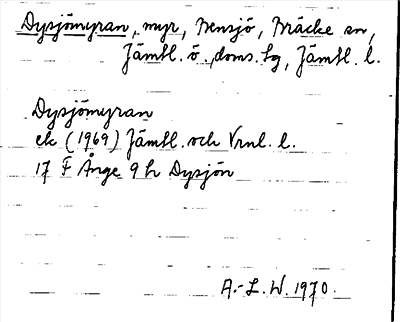 Dysjömyran, myr, Rensjö, Bräcke sn,
Jämtl. ö. doms. tg, Jämtl. l.
Dysjömyran
ek (1969) Jämtl. och Vrnl. l.
17 F Ånge 9 h Dysjön
A.-L. W. 1970.